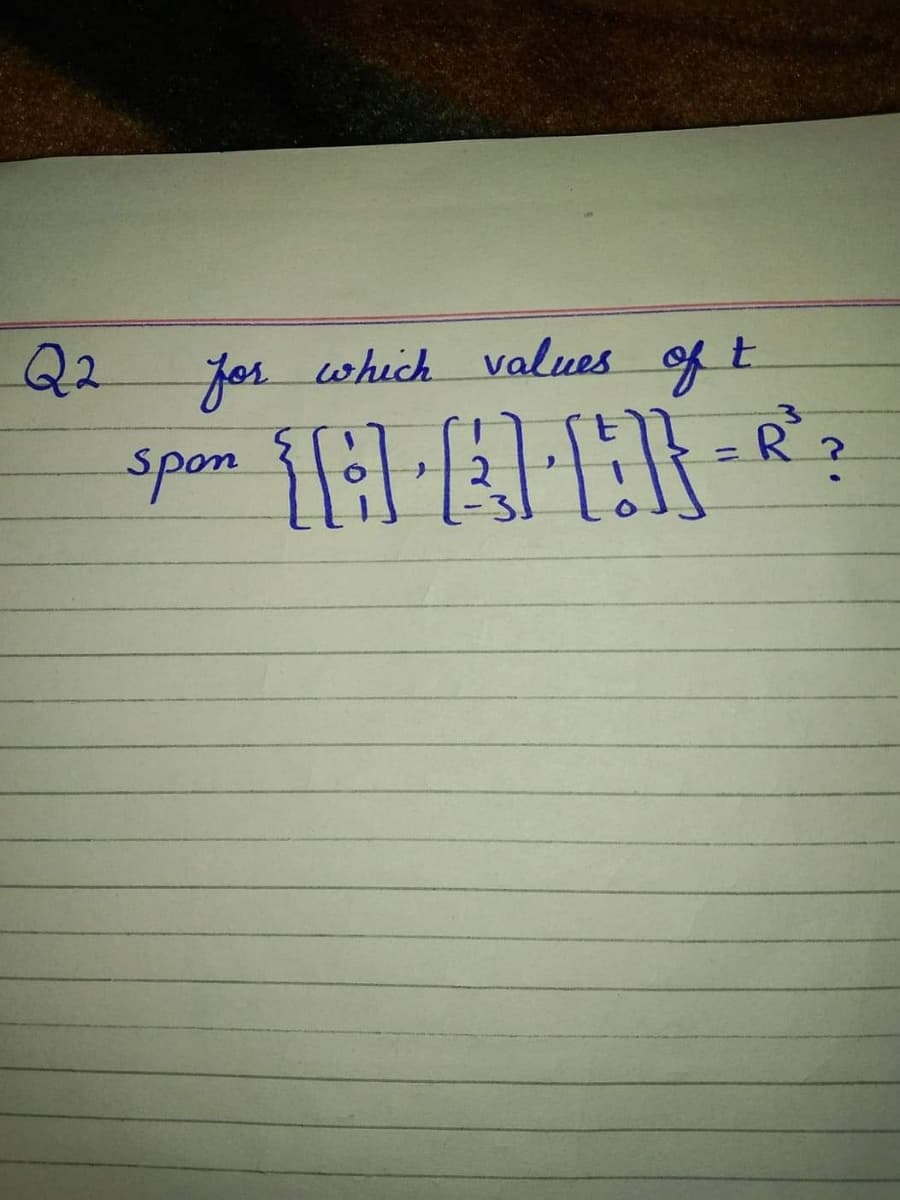 Q2 for which values of t
span {[1 0 1], [1 2 -3], [t 1 0]} = R³ ?